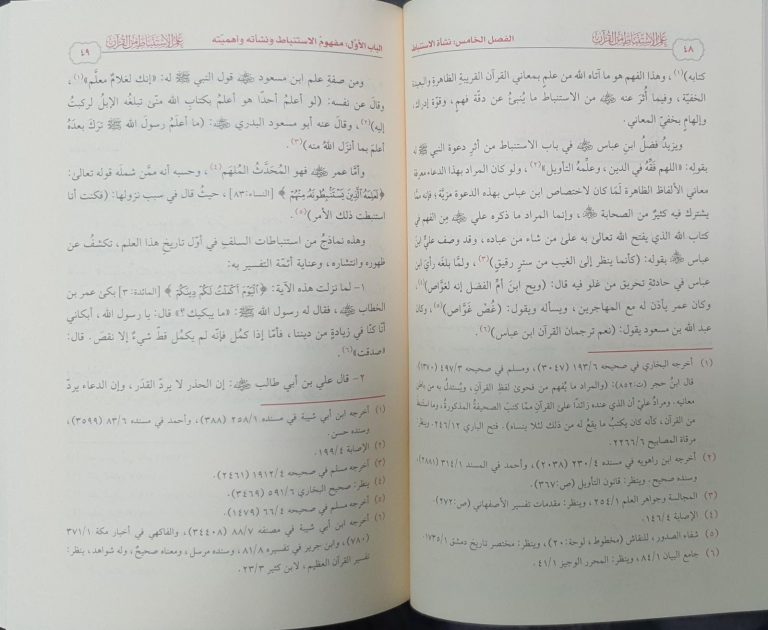 ٤٨
علم الاستنباط من القرآن
الفصل الخامس: نشأة الاستنباط
كتابه)(١)، وهذا الفهم هو ما آتاه الله من علمٍ بمعاني القرآن القريبةِ الظاهرةِ والبعيدةِ
الخفيّة، وفيما أُثرَ عنه ﷺ من الاستنباط ما يُنبئُ عن دقّة فهمٍ، وقوّة إدراكٍ،
وإلهامٍ بخفيّ المعاني.
ويزيدُ فضلُ ابنِ عباسٍ في باب الاستنباط من أثرِ دعوة النبي ﷺ له
بقوله: «اللهم فقّهْهُ في الدين، وعلِّمهُ التأويل»(٢)، ولو كان المراد بهذا الدعاء معرفة
معاني الألفاظ الظاهرة لَمَا كان لاختصاص ابن عباس بهذه الدعوة مزيَّة؛ فإنه ممَّا
يشتركُ فيه كثيرٌ من الصحابة، وإنما المراد ما ذكره علي من الفهم في
كتاب الله الذي يفتح الله تعالى به على من شاء من عباده، وقد وصف عليٌّ ابنَ
عباس بقوله: (كأنما ينظر إلى الغيب من سترٍ رقيقٍ)(٣)، ولمَّا بلغَه رأيُ ابن
عباس في حادثةِ تحريق من غلو فيه قال: (ويح ابن أمِّ الفضل إنه لغوَّاص)(٤)،
وكان عمر يأذن له مع المهاجرين، ويسأله ويقول: (غُصْ غَوَّاص)(٥)، وكان
عبد الله بن مسعود يقول: (نعم ترجمان القرآن ابن عباس)(٦).
(١) أخرجه البخاري في صحيحه ١٩٣/٦ (٣٠٤٧)، ومسلم في صحيحه ٤٩٧/٣ (١٣٧٠)
قال ابنُ حجر (ت:٨٥٢): (والمراد ما يُفهم من فحوى لفظِ القرآنِ، ويُستدلُّ به من باطن
معانيه. ومرادُ عليّ أن الذي عنده زائدًا على القرآنِ ممّا كتبَ الصحيفةُ المذكورةُ، وما استنبط
من القرآن، كأنه كان يكتبُ ما يقعُ له من ذلك لئلا ينساه). فتح الباري ٢٤٦/١٢. وينظر:
مرقاة المصابيح ٢٢٦٦/٦.
(٢) أخرجه ابن راهويه في مسنده ٢٣٠/٤ (٢٠٣٨)، وأحمد في المسند ٣١٤/١ (٢٨٨١)
وسنده صحيح. وينظر: قانون التأويل (ص:٣٦٧).
(٣) المجالسة وجواهر العلم ٢٥٤/١، وينظر: مقدمات تفسير الأصفهاني (ص:٢٧٢).
(٤) الإصابة ١٤٦/٤.
(٥) شفاء الصدور، للنقاش (مخطوط، لوحة:٢٠)، وينظر: مختصر تاريخ دمشق ١٧٣٥/١.
(٦) جامع البيان ٨٤/١، وينظر: المحرر الوجيز ٤١/١.
الباب الأوّل: مفهوم الاستنباط ونشأته وأهميّته
علم الاستنباط من القرآن
٤٩
ومن صفةِ علم ابن مسعود قول النبي ﷺ له: «إنك لغلامٌ معلَّم»(١)،
وقالَ عن نفسه: (لو أعلمُ أحدًا هو أعلمُ بكتابِ الله منّي تبلغُه الإبلُ لركبتُ
إليه)(٢)، وقال عنه أبو مسعود البدري: (ما أعلمُ رسول الله ﷺ تركَ بعدَهُ
أعلمَ بما أنزَلَ اللهُ منه)(٣).
وأمّا عمر فهو المُحَدَّثُ المُلهَم(٤)، وحسبه أنه ممّن شملَه قوله تعالى:
﴿لَعَلِمَهُ ٱلَّذِينَ يَسْتَنۢبِطُونَهُۥ مِنْهُمْ﴾ [النساء:٨٣]، حيثُ قال في سبب نزولها: (فكنت أنا
استنبطت ذلك الأمر)(٥).
وهذه نماذجُ من استنباطات السلفِ في أوّل تاريخ هذا العلم، تكشفُ عن
ظهورِه وانتشارِه، وعنايةِ أئمّة التفسير به:
١- لما نزلت هذه الآية: ﴿ٱلْيَوْمَ أَكْمَلْتُ لَكُمْ دِينَكُمْ﴾ [المائدة:٣] بكى عمر بن
الخطاب، فقال له رسول الله ﷺ: «ما يبكيك؟» قال: يا رسول الله، أبكاني
أنّا كنَّا في زيادةٍ من ديننا، فأمّا إذا كمُل فإنّه لم يكمُل قطّ شيءٌ إلا نقصَ. قال:
«صدقت»(٦).
٢- قال علي بن أبي طالب: إن الحذر لا يردّ القدَر، وإن الدعاء يردّ
(١) أخرجه ابن أبي شيبة في مسنده ٢٥٨/١ (٣٨٨)، وأحمد في مسنده ٨٣/٦ (٣٥٩٩)،
وسنده حسن.
(٢) الإصابة ١٩٩/٤.
(٣) أخرجه مسلم في صحيحه ١٩١٢/٤ (٢٤٦١).
(٤) ينظر: صحيح البخاري ٥٩١/٦ (٣٤٦٩).
(٥) أخرجه مسلم في صحيحه ٦٦/٤ (١٤٧٩).
(٦) أخرجه ابن أبي شيبة في مصنفه ٨٨/٧ (٣٤٤٠٨)، والفاكهي في أخبار مكة ٣٧١/١
(٧٨٠)، وابن جرير في تفسيره ٨١/٨، وسنده مرسل، ومعناه صحيحٌ، وله شواهد، ينظر:
تفسير القرآن العظيم، لابن كثير ٢٣/٣.